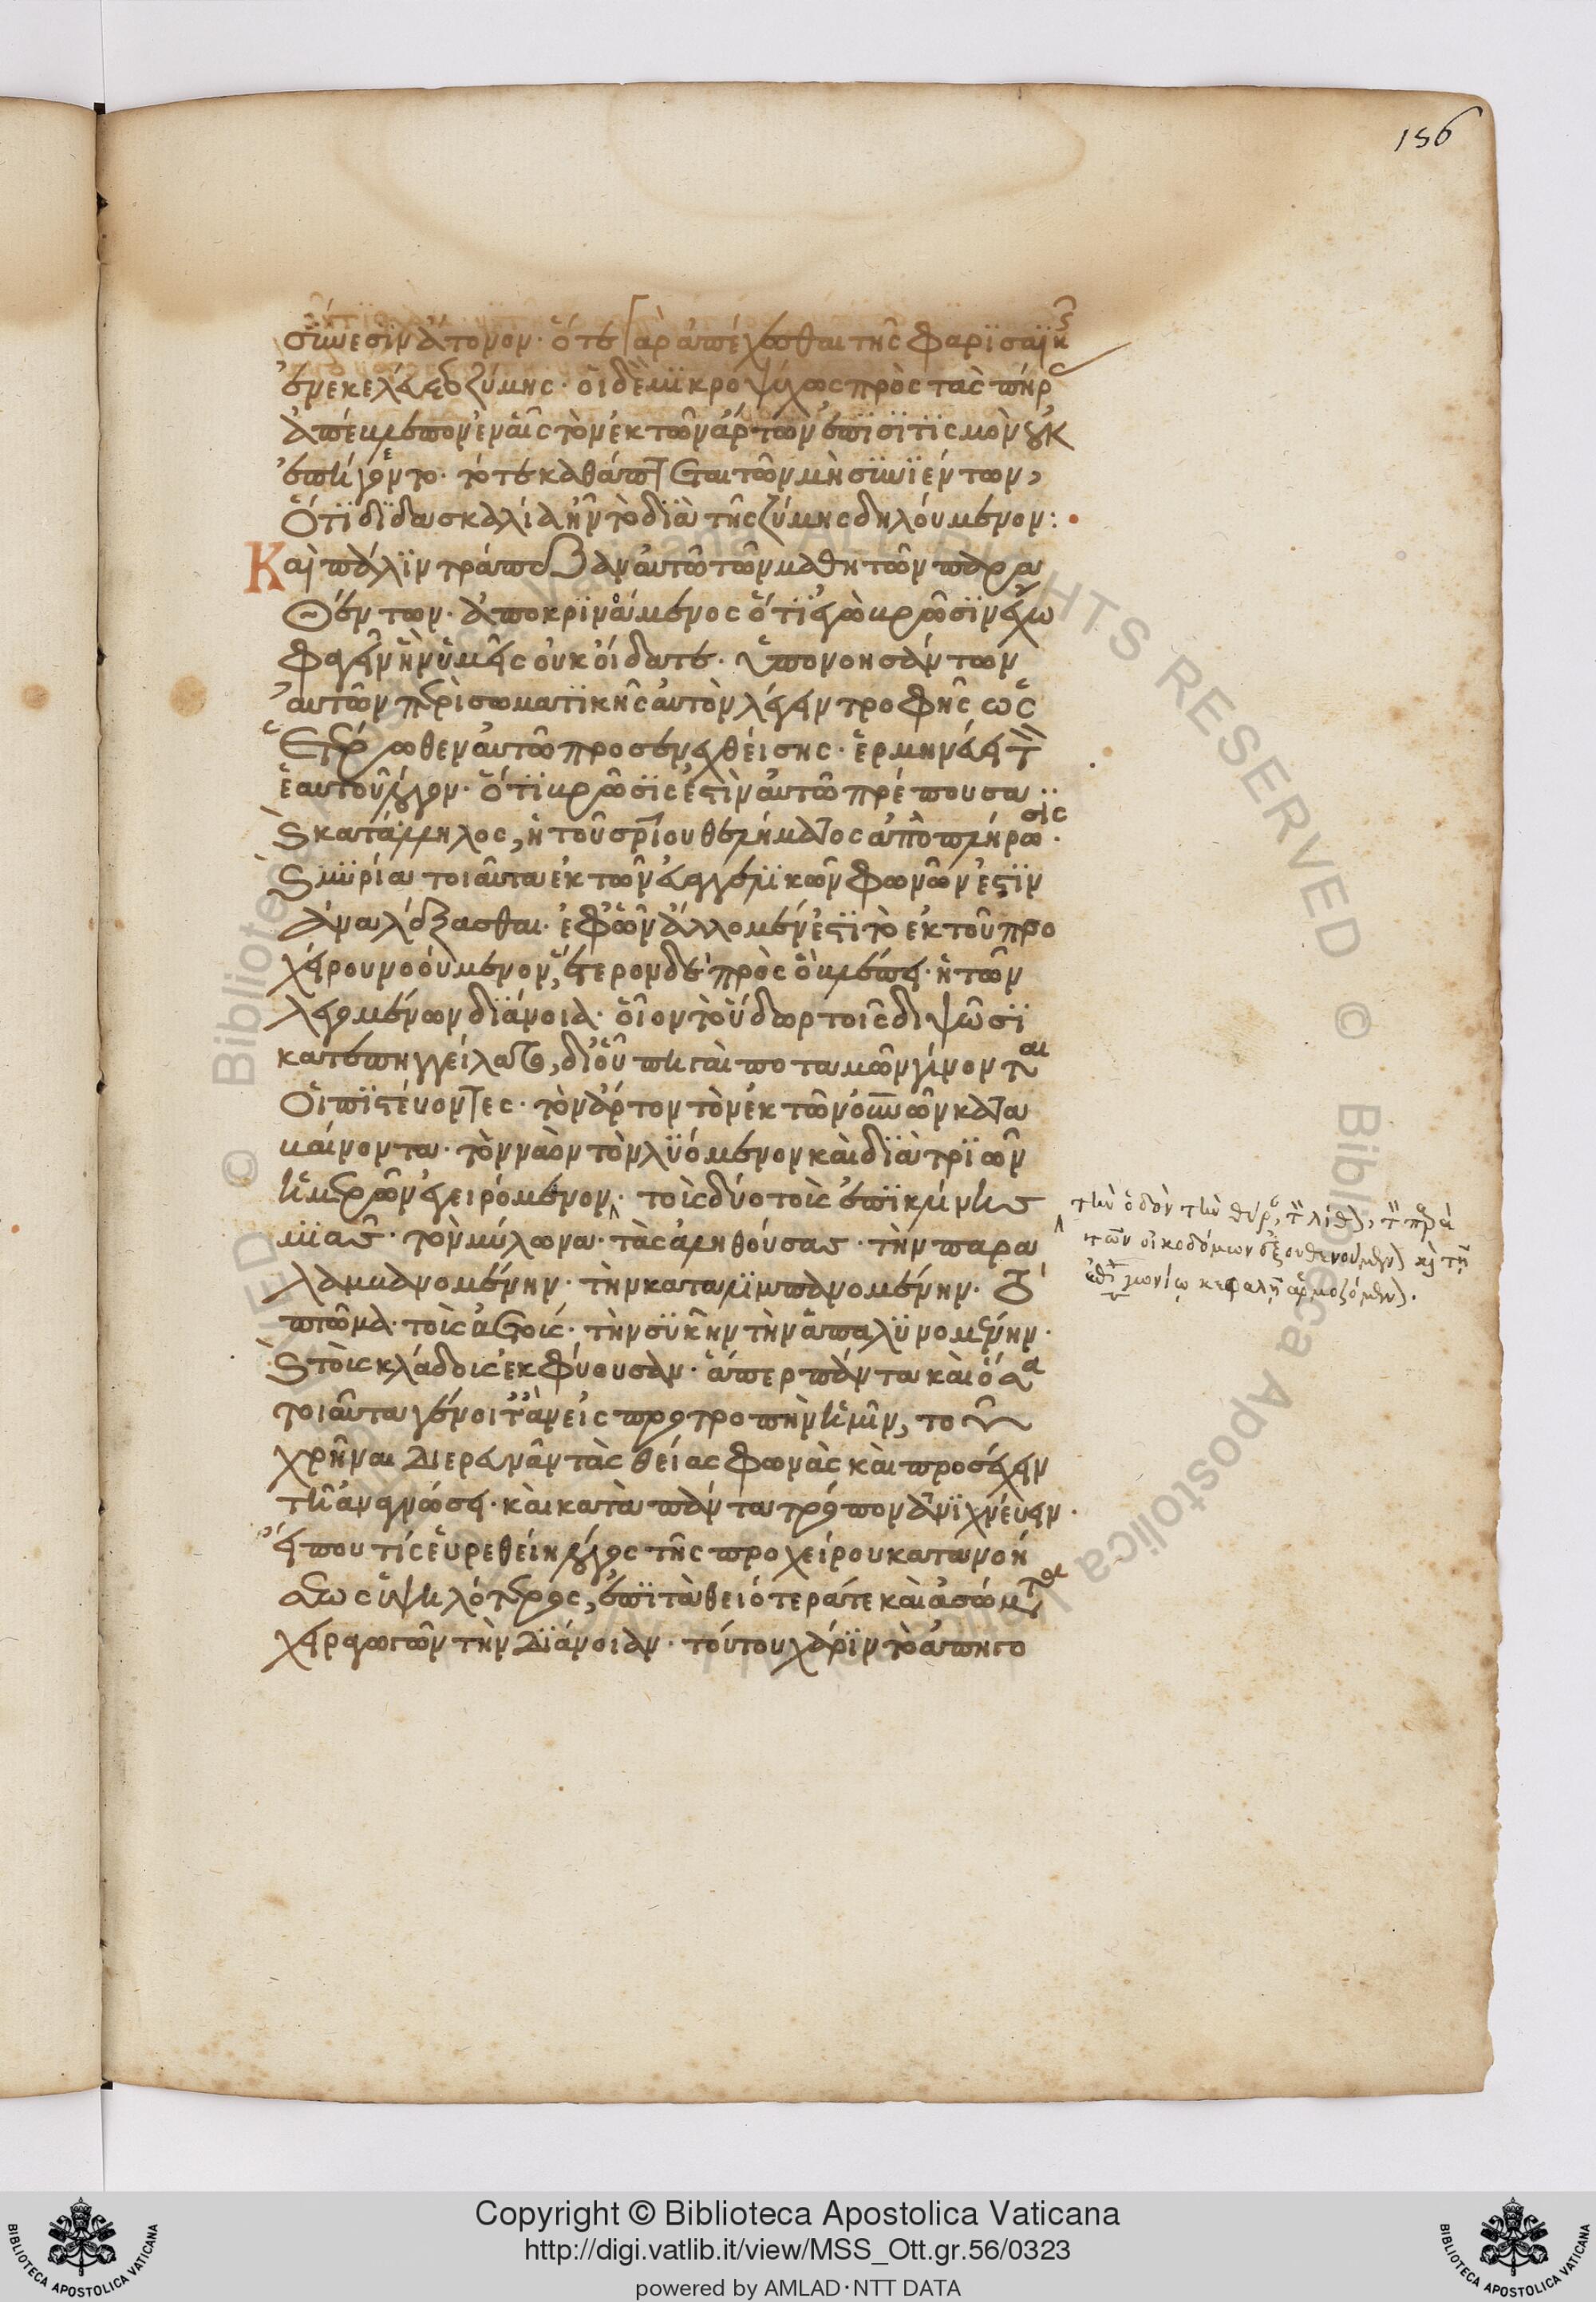 156
σύνεσιν ἄτονον· ὅτε γὰρ ἀπέχεσθαι τῆς φαρισαϊκῆς
ἐνεκελεύετο ζύμης· οἱ δὲ μικροψύχως πρὸς τὰς πήρας
ἀπέβλεπον ἐν αἷς τὸν ἐκ τῶν ἄρτων ἐπισιτισμὸν οὐκ
ἐπήγοντο· τότε καθάπτεται τῶν μὴ συνιέντων,
ὅτι διδασκαλία ἦν τὸ διὰ τῆς ζύμης δηλούμενον:
Καὶ πάλιν τράπεζαν αὐτῶ τῶν μαθητῶν παρα
θέντων· ἀποκρινάμενος ὅτι ἐγὼ βρῶσιν ἔχω
φαγεῖν ἣν ὑμεῖς οὐκ οἴδατε· ὑπονοησάντων
αὐτῶν περὶ σωματικῆς αὐτὸν λέγειν τροφῆς ὡς
ἑτέρωθεν αὐτῶ προσενεχθείσης· ἑρμηνεύει τὸν
ἑαυτοῦ λόγον· ὅτι βρῶσίς ἐστιν αὐτῶ πρέπουσα
καὶ κατάλληλος, ἡ τοῦ σωτηρίου θελήματος ἀποπλήρωσις·
καὶ μυρία τοιαῦτα ἐκ τῶν εὐαγγελικῶν φωνῶν ἐστιν
ἀναλέξασθαι· ἐφ' ὧν ἄλλο μέν ἐστι τὸ ἐκ τοῦ προ
χείρου νοούμενον, ἕτερον δὲ πρὸς ὃ βλέπει· ἡ τῶν
λεγομένων διάνοια· οἷον τὸ ὕδωρ τοῖς διψῶσι
κατεπηγγείλατο, δι' οὗ πηγαὶ ποταμῶν γίνονται
οἱ πιστεύοντες· τὸν ἄρτον τὸν ἐκ τῶν οὐρανῶν κατα
βαίνοντα· τὸν ναὸν τὸν λυόμενον καὶ διὰ τριῶν
ἡμερῶν ἐγειρόμενον· τοῖς δύο τοῖς ἐπὶ κλίνης
μιᾶς· τὸν μύλωνα· τὰς ἀληθούσας· τὴν παρα
λαμβανομένην· τὴν καταλιμπανομένην· τὸ
πτῶμα· τοῖς ἀετοῖς· τὴν συκῆν τὴν ἁπαλυνομένην·
καὶ τοῖς κλάδοις ἐκφύουσαν· ἅπερ πάντα καὶ ὅσα
τοιαῦτα γένοιτ' ἂν εἰς προτροπὴν ἡμῖν, τοῦ
χρῆναι διερευνᾶν τὰς θείας φωνὰς καὶ προσέχειν
τῆ ἀναγνώσει· καὶ κατὰ πάντα τρόπον ἀνιχνεύειν·
εἴ που τίς εὑρεθείη λόγος τῆς προχείρου κατανοή
σεως ὑψηλότερος, ἐπὶ τὰ θειότερά τε καὶ ἀσώματα
χειραγωγῶν τὴν διάνοιαν· τούτου χάριν τὸ ἀπηγο
τὴν ὁδὸν τὴν θύραν, τὸν λίθον, τὸν παρὰ
τῶν οἰκοδόμων ἐξουθενούμενον καὶ τῇ
γωνίᾳ κεφαλῇ ἁρμοζόμενον.
Copyright © Biblioteca Apostolica Vaticana
http://digi.vatlib.it/view/MSS_Ott.gr.56/0323
powered by AMLAD·NTT DATA
BIBLIOTECA APOSTOLICA VATICANA
BIBLIOTECA APOSTOLICA VATICANA